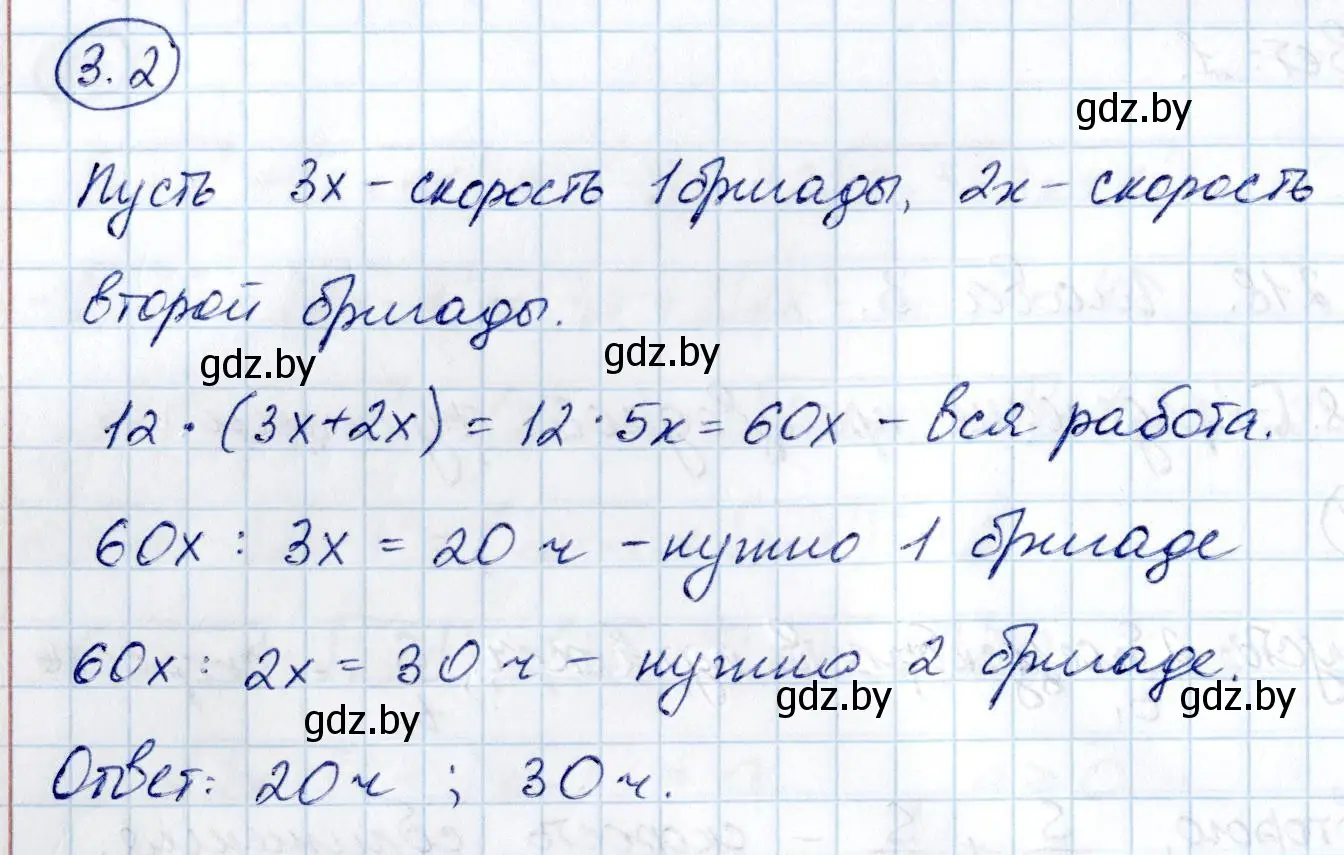 3.2
gdz.by
Пусть 3х - скорость 1 бригады, 2х - скорость
второй бригады.
gdz.by
gdz.by
12 · (3х+2х) = 12 · 5х = 60х - вся работа.
60х : 3х = 20 ч - нужно 1 бригаде
60х : 2х = 30 ч - нужно 2 бригаде.
gdz.by
gdz.by
gdz.by
Ответ: 20 ч ; 30 ч.